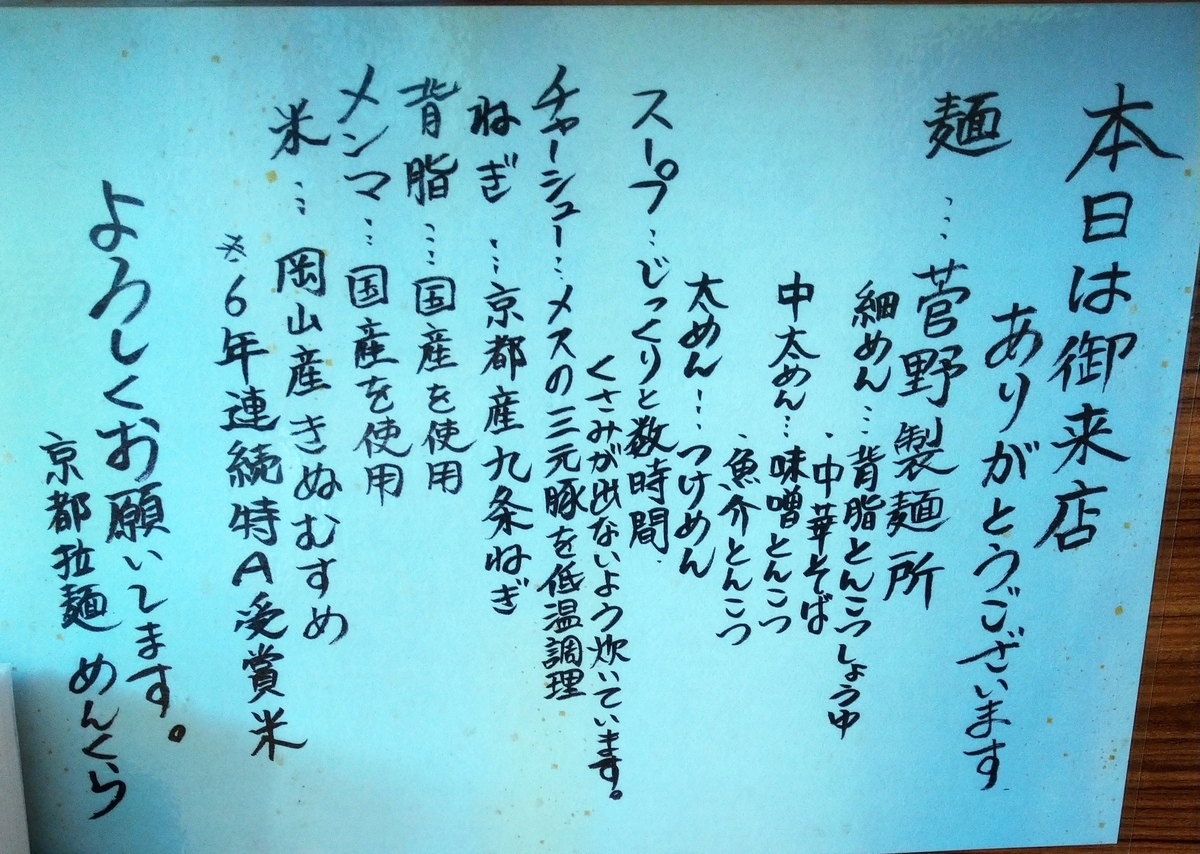 本日は御来店
ありがとうございます
麺…菅野製麺所
細めん…背脂とんこつしょうゆ
・中華そば
中太めん…味噌とんこつ
・魚介とんこつ
太めん…つけめん
スープ…じっくりと数時間
くさみが出ないよう炊いています。
チャーシュー…メスの三元豚を低温調理
ねぎ…京都産九条ねぎ
背脂…国産を使用
メンマ…国産を使用
米…岡山産きぬむすめ
※6年連続特A受賞米
よろしくお願いします。
京都拉麺 めんくら